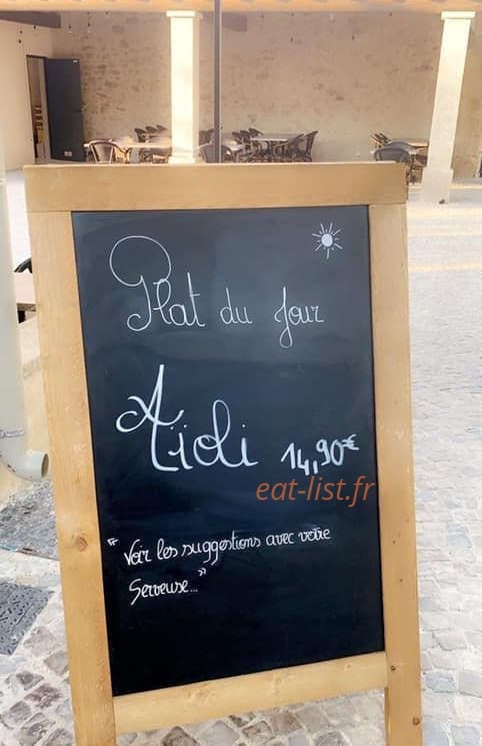 Plat du Jour
Aïoli 14,90€
eat-list.fr
"Voir les suggestions avec votre
Serveuse..."